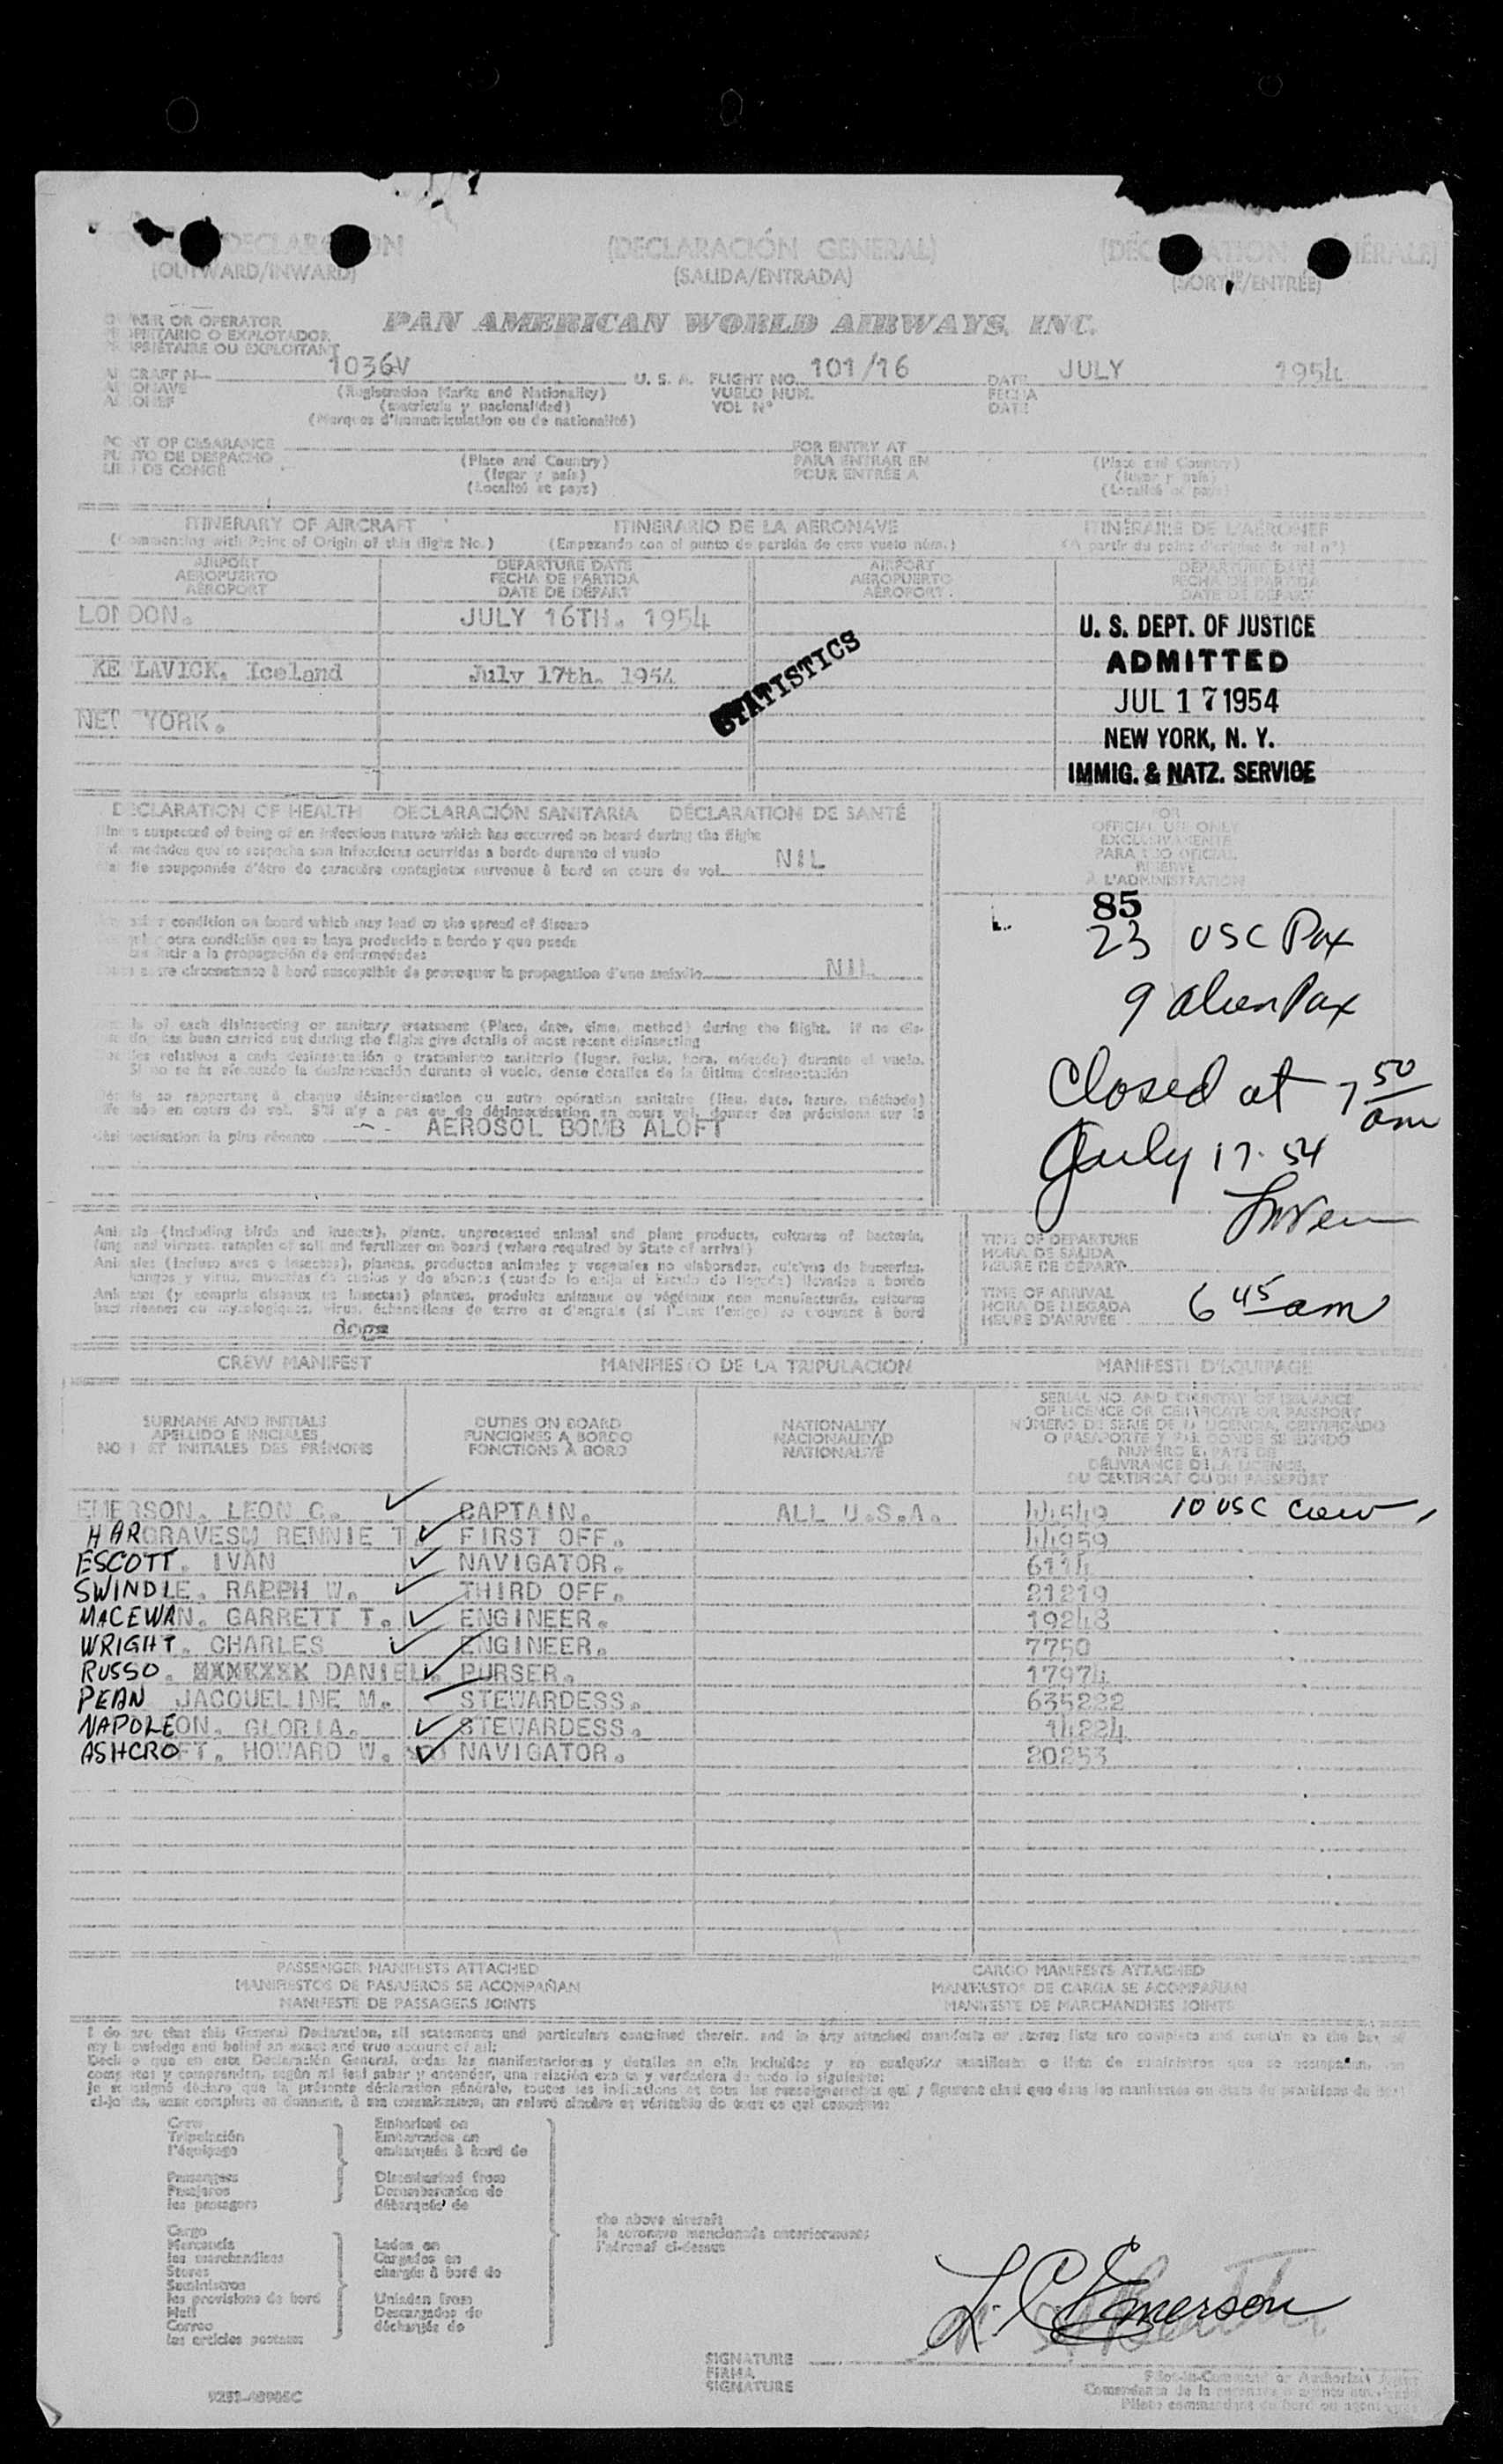 (DECLARACIÓN GENERAL)
(OUTWARD/INWARD) (SALIDA/ENTRADA) (SORTIE/ENTRÉE)
OWNER OR OPERATOR PAN AMERICAN WORLD AIRWAYS, INC.
PROPIETARIO O EXPLOTADOR
PROPRIÉTAIRE OU EXPLOITANT
1036V U. S. A. FLIGHT NO. 101/16 DATE JULY 1954
(Registration Marks and Nationality) VUELO NUM. FECHA
(matrícula y nacionalidad) VOL Nº DATE
(Marques d'immatriculation ou de nationalité)
POINT OF CLEARANCE FOR ENTRY AT
PUNTO DE DESPACHO (Place and Country) PARA ENTRAR EN (Place and Country)
LIEU DE CONGÉ (lugar y país) POUR ENTRÉE A (lugar y país)
(Localité et pays) (Localité et pays)
ITINERARY OF AIRCRAFT ITINERARIO DE LA AERONAVE ITINÉRAIRE DE L'AÉRONEF
(Commencing with Point of Origin of this flight No.) (Empezando con el punto de partida de este vuelo núm.) (A partir du point d'origine du vol nº)
AIRPORT DEPARTURE DATE AIRPORT DEPARTURE DATE
AEROPUERTO FECHA DE PARTIDA AEROPUERTO FECHA DE PARTIDA
AÉROPORT DATE DE DÉPART AÉROPORT DATE DE DÉPART
LONDON. JULY 16TH. 1954
U. S. DEPT. OF JUSTICE
ADMITTED
KEFLAVICK, Iceland July 17th. 1954
STATISTICS
JUL 17 1954
NEW YORK.
NEW YORK, N. Y.
IMMIG. & NATZ. SERVICE
DECLARATION OF HEALTH DECLARACIÓN SANITARIA DÉCLARATION DE SANTÉ
Illness suspected of being of an infectious nature which has occurred on board during the flight
Enfermedades que se sospecha son infecciosas ocurridas a bordo durante el vuelo
Maladie soupçonnée d'être de caractère contagieux survenue à bord en cours de vol NIL
FOR
OFFICIAL USE ONLY
EXCLUSIVAMENTE
PARA USO OFICIAL
RÉSERVÉ
À L'ADMINISTRATION
Any other condition on board which may lead to the spread of disease
otra condición que se haya producido a bordo y que pueda
a la propagación de enfermedades
autre circonstance à bord susceptible de provoquer la propagation d'une maladie NIL
85
23 USC Pax
9 alien Pax
Closed at 7 50 am
July 17. 54
Details of each disinsecting or sanitary treatment (Place, date, time, method) during the flight. If no disinsecting has been carried out during the flight give details of most recent disinsecting
Detalles relativos a cada desinsectación o tratamiento sanitario (lugar, fecha, hora, método) durante el vuelo.
Si no se ha efectuado la desinsectación durante el vuelo, dense detalles de la última desinsectación
Détails se rapportant à chaque désinsectisation ou autre opération sanitaire (lieu, date, heure, méthode)
effectuée en cours de vol. S'il n'y a pas eu de désinsectisation en cours vol, donner des précisions sur la
désinsectisation la plus récente AEROSOL BOMB ALOFT
Animals (including birds and insects), plants, unprocessed animal and plant products, cultures of bacteria,
fungi and viruses, samples of soil and fertilizer on board (where required by State of arrival)
Animales (incluso aves o insectos), plantas, productos animales y vegetales no elaborados, cultivos de bacterias,
hongos y virus, muestras de suelos y de abonos (cuando lo exija el Estado de llegada) llevados a bordo
Animaux (y compris oiseaux et insectes) plantes, produits animaux ou végétaux non manufacturés, cultures
bactériennes ou mycologiques, virus, échantillons de terre et d'engrais (si l'Etat l'exige) se trouvant à bord
dogs
TIME OF DEPARTURE
HORA DE SALIDA
HEURE DE DÉPART
TIME OF ARRIVAL
HORA DE LLEGADA 6 45 am
HEURE D'ARRIVÉE
CREW MANIFEST MANIFIESTO DE LA TRIPULACION MANIFESTE D'ÉQUIPAGE
SURNAME AND INITIALS DUTIES ON BOARD NATIONALITY
APELLIDO E INICIALES FUNCIONES A BORDO NACIONALIDAD
NOM ET INITIALES DES PRÉNOMS FONCTIONS À BORD NATIONALITÉ
SERIAL NO. AND COUNTRY OF ISSUANCE
OF LICENCE OR CERTIFICATE OR PASSPORT
NÚMERO DE SERIE DE LA LICENCIA, CERTIFICADO
O PASAPORTE Y PAIS DONDE SE EXPIDIÓ
NUMÉRO ET PAYS DE
DÉLIVRANCE DE LA LICENCE,
DU CERTIFICAT OU DU PASSEPORT
EMERSON, LEON C. CAPTAIN. ALL U.S.A. 44549 10 USC Crew
HARGRAVESW RENNIE T. FIRST OFF. 44959
ESCOTT. IVAN NAVIGATOR. 6114
SWINDLE. RALPH W. THIRD OFF. 21219
MACEWAN. GARRETT T. ENGINEER. 19248
WRIGHT. CHARLES ENGINEER. 7750
RUSSO. DANIEL. PURSER. 17974
PEAN JACQUELINE M. STEWARDESS. 635222
NAPOLEON. GLORIA. STEWARDESS. 14224
ASHCROFT. HOWARD W. NAVIGATOR. 20253
PASSENGER MANIFESTS ATTACHED CARGO MANIFESTS ATTACHED
MANIFIESTOS DE PASAJEROS SE ACOMPAÑAN MANIFIESTOS DE CARGA SE ACOMPAÑAN
MANIFESTE DE PASSAGERS JOINTS MANIFESTE DE MARCHANDISES JOINTS
I declare that this General Declaration, all statements and particulars contained therein, and in any attached manifests or stores lists are complete and contain to the best of
my knowledge and belief an exact and true account of all:
Declaro que en esta Declaración General, todas las manifestaciones y detalles en ella incluidos y en cualquier manifiesto o lista de suministros que se acompañan, son
completos y comprenden, según mi leal saber y entender, una relación exacta y verdadera de todo lo siguiente:
Je soussigné déclare que la présente déclaration générale, toutes les indications et tous les renseignements qui y figurent ainsi que dans les manifestes ou états de provisions de bord
ci-joints, sont complets et donnent, à ma connaissance, un relevé sincère et véritable de tout ce qui concerne:
Crew Embarked on
Tripulación Embarcados en
l'équipage embarqués à bord de
Passengers Disembarked from
Pasajeros Desembarcados de
les passagers débarqués de
the above aircraft
la aeronave mencionada anteriormente
l'aéronef ci-dessus
Cargo
Mercancía Laden on
les marchandises Cargados en
Stores chargés à bord de
Suministros
les provisions de bord Unladen from
Mail Descargados de
Correo déchargés de
les articles postaux
L. C. Emerson
SIGNATURE
FIRMA
SIGNATURE
Pilot-in-Command or Authorized Agent